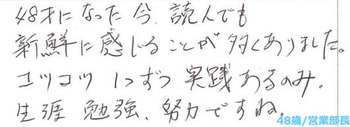 48才になった今、読んでも
新鮮に感じることが多くありました。
コツコツ1つずつ実践あるのみ。
生涯勉強、努力ですね。
48歳/営業部長